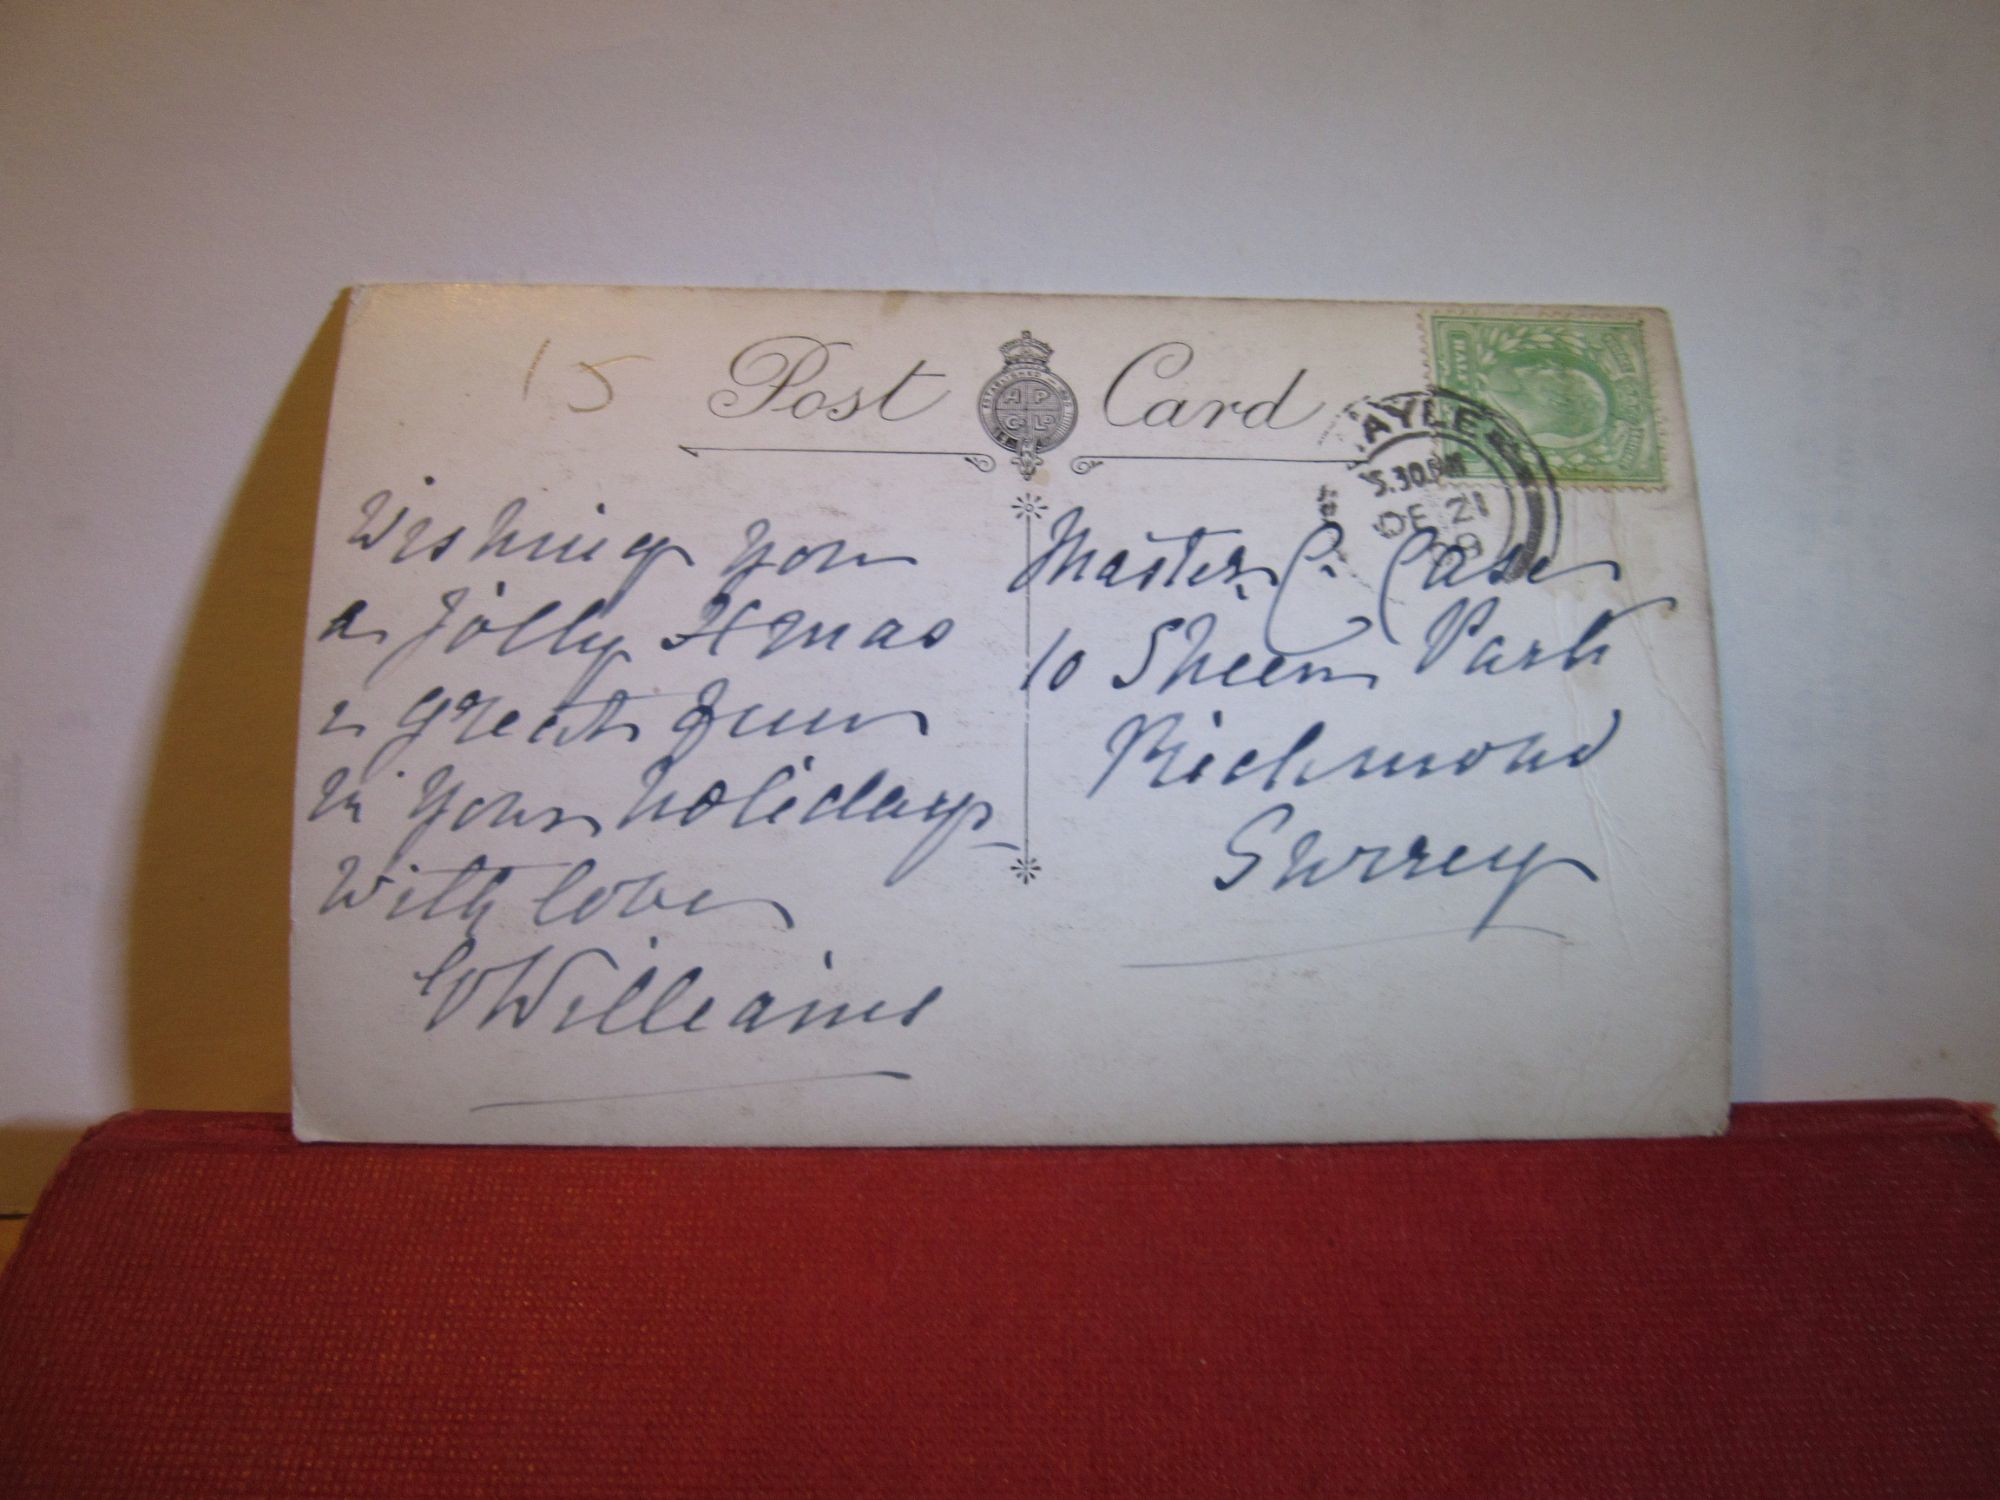 15
Post Card
A P
C Ld
AYLE
5.30 PM
DE 21
09
HALF
Wishing you
a jolly Xmas
& great fun
in your holidays
With love
Williams
Master C. Case
10 Sheen Park
Richmond
Surrey